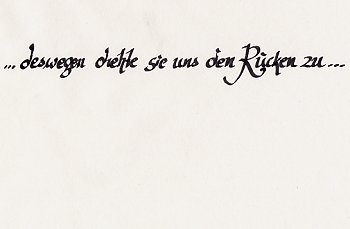 ... deswegen drehte sie uns den Rücken zu ...